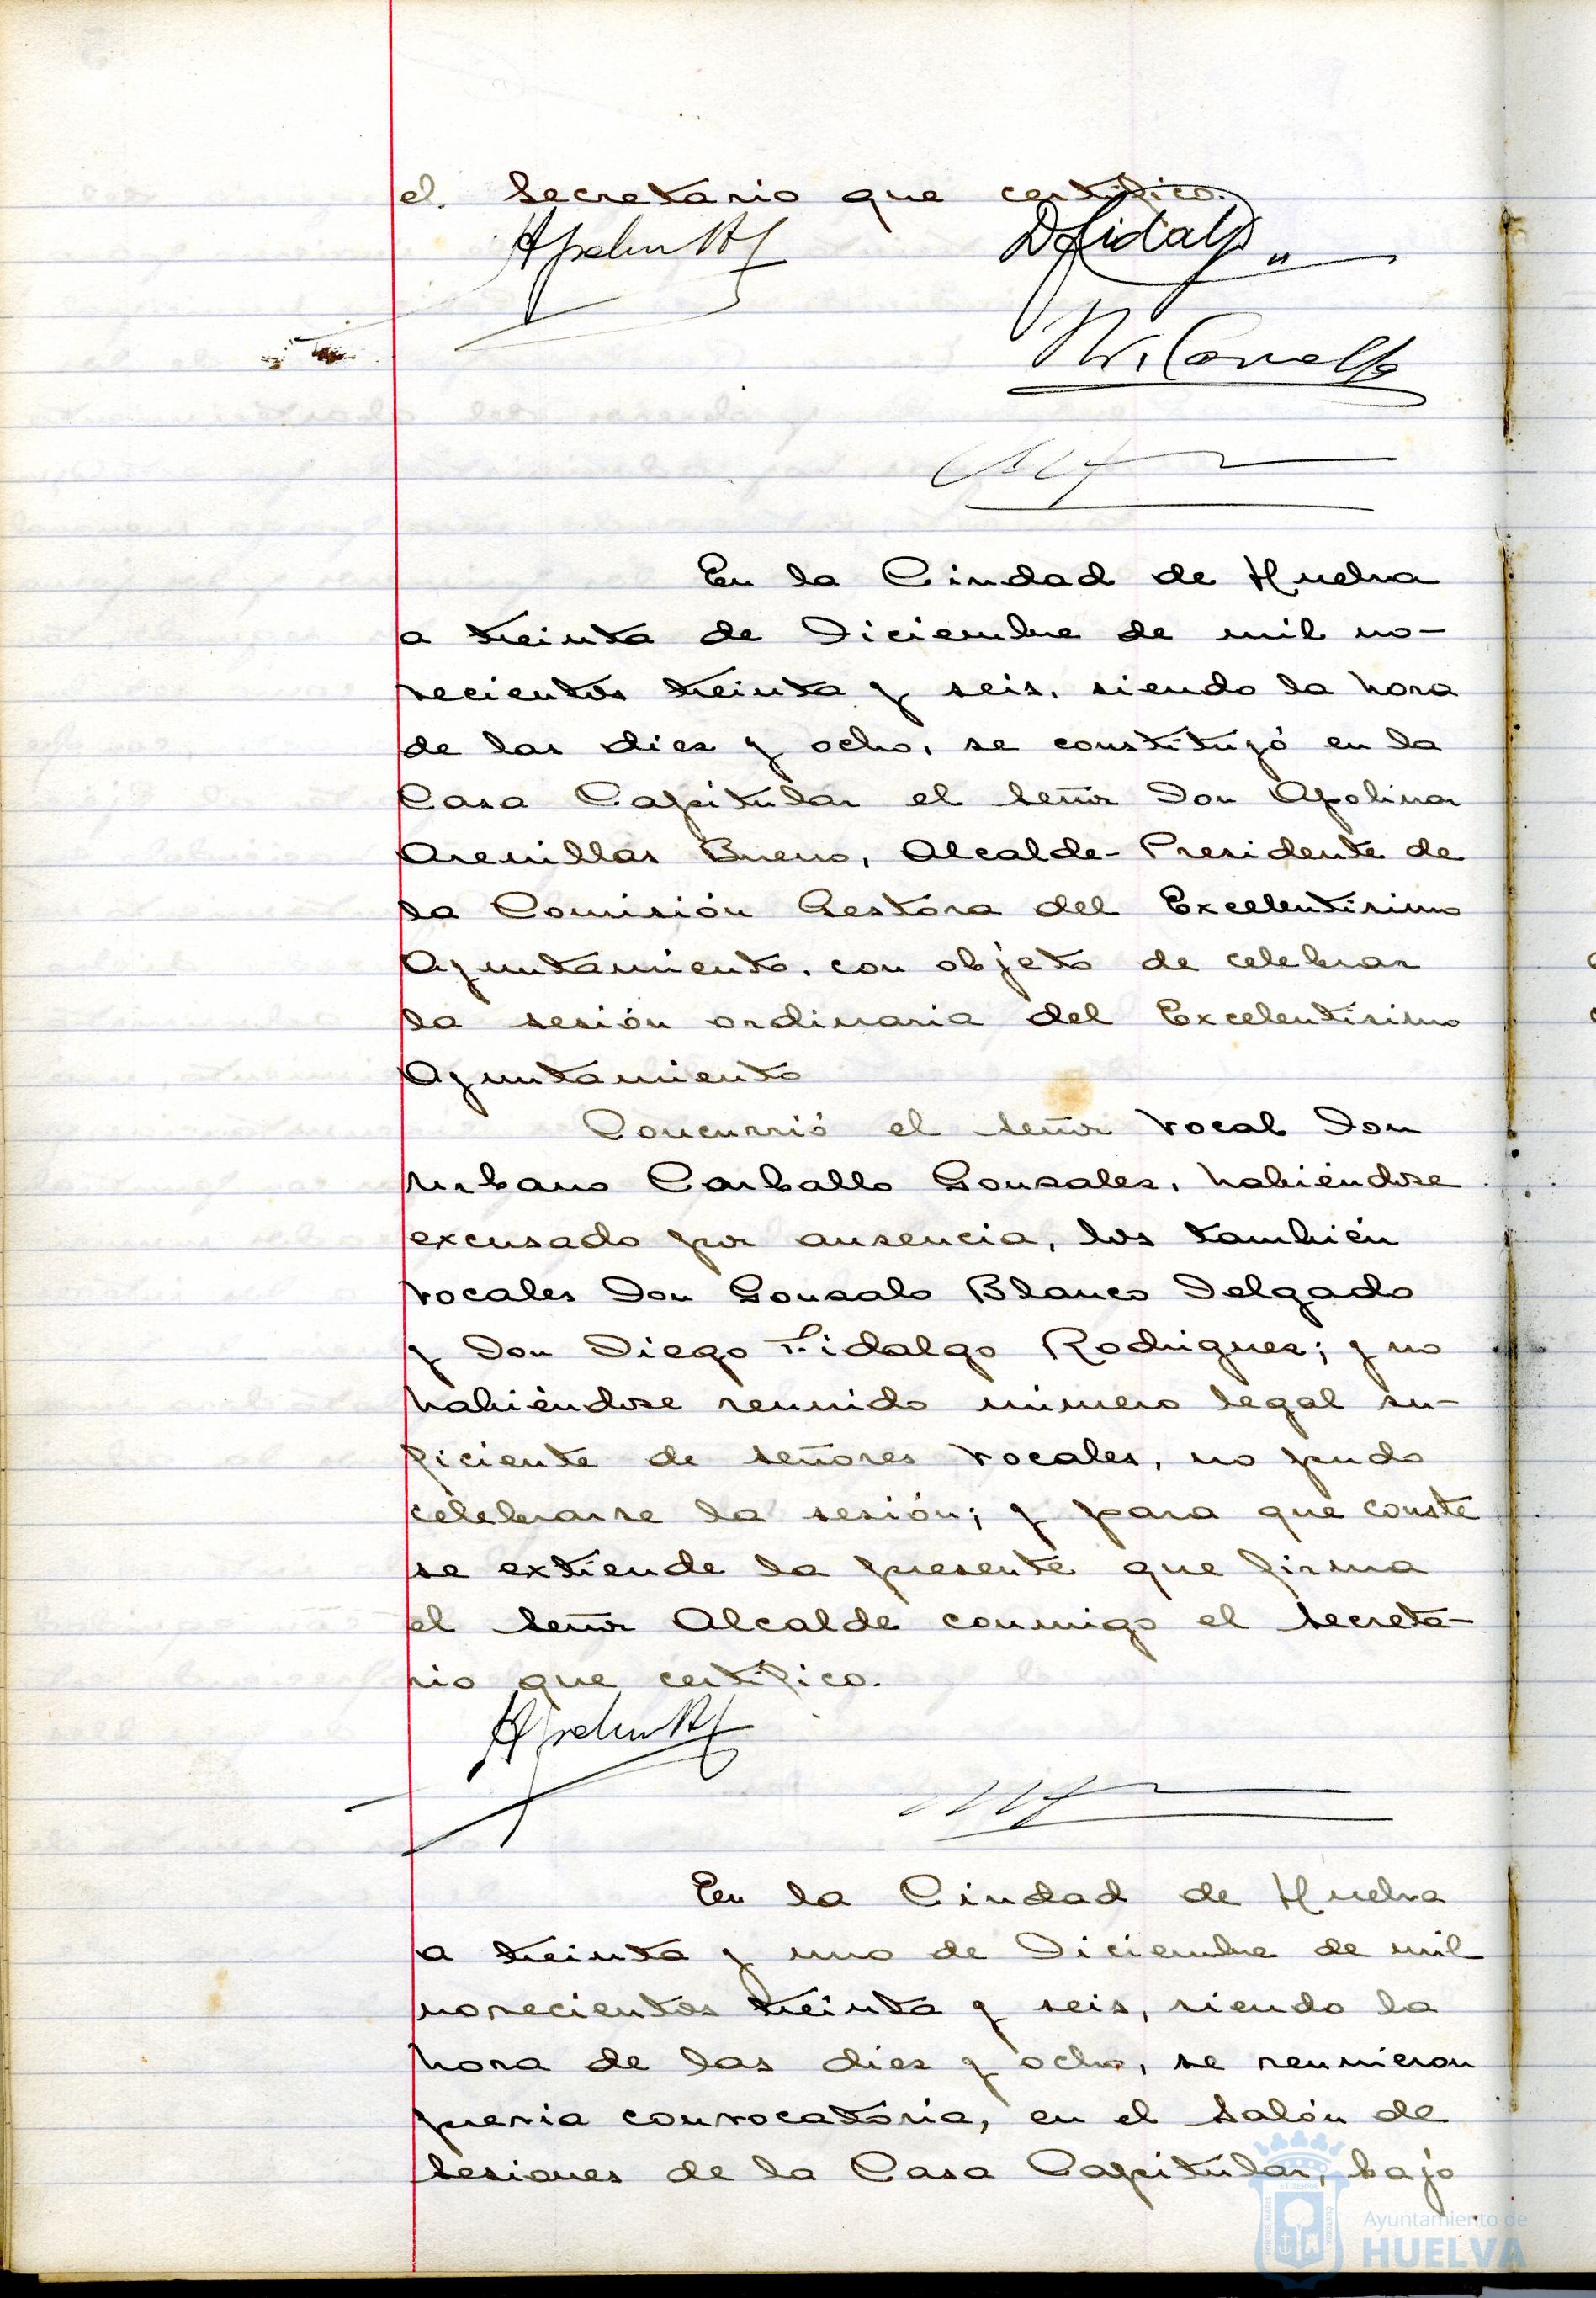 el Secretario que certifico.
DFidalgo
En la Ciudad de Huelva
a treinta de Diciembre de mil no-
vecientos treinta y seis, siendo la hora
de las diez y ocho, se constituyó en la
Casa Capitular el Señor Don Apolinar
Arenillas Bueno, Alcalde-Presidente de
la Comisión Gestora del Excelentísimo
Ayuntamiento, con objeto de celebrar
la sesión ordinaria del Excelentísimo
Ayuntamiento
Concurrió el Señor Vocal Don
Urbano Carballo Gonzalez, habiéndose
excusado por ausencia, los también
Vocales Don Gonzalo Blanco Delgado
y Don Diego Fidalgo Rodriguez; y no
habiéndose reunido número legal su-
ficiente de Señores Vocales, no pudo
celebrarse la sesión; y para que conste
se extiende la presente que firma
el Señor Alcalde conmigo el Secreta-
rio que certifico.
En la Ciudad de Huelva
a treinta y uno de Diciembre de mil
novecientos treinta y seis, siendo la
hora de las diez y ocho, se reunieron
previa convocatoria, en el Salón de
Sesiones de la Casa Capitular, bajo
Ayuntamiento de
HUELVA